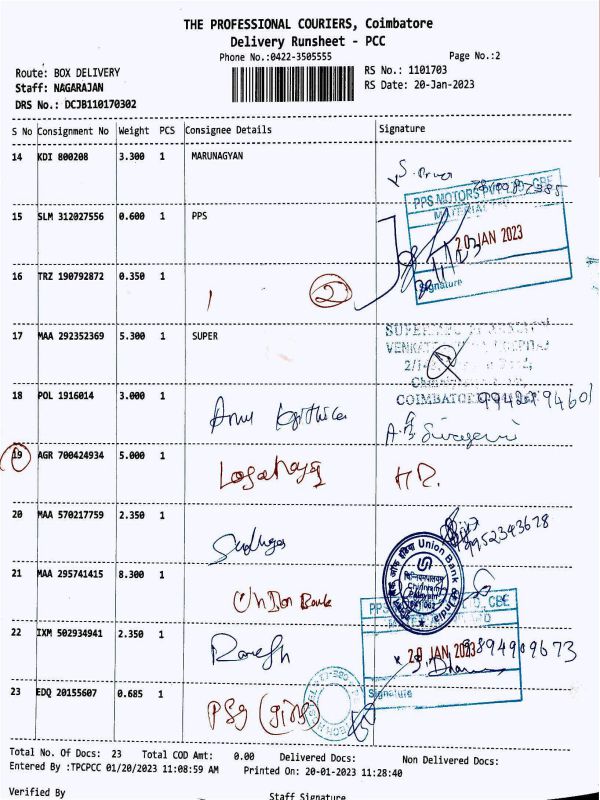 THE PROFESSIONAL COURIERS, Coimbatore
Delivery Runsheet - PCC
Phone No.:0422-3505555 Page No.:2
Route: BOX DELIVERY RS No.: 1101703
Staff: NAGARAJAN RS Date: 20-Jan-2023
DRS No.: DCJB110170302
S No Consignment No Weight PCS Consignee Details Signature
14 KDI 800208 3.300 1 MARUNAGYAN
PPS MOTORS CBE
15 SLM 312027556 0.600 1 PPS
20 JAN 2023
16 TRZ 190792872 0.350 1
Signature
1 2
17 MAA 292352369 5.300 1 SUPER
VENKAT
2/1
COIMBATORE
18 POL 1916014 3.000 1
19 AGR 700424934 5.000 1
20 MAA 570217759 2.350 1
9952343678
Union Bank of India
21 MAA 295741415 8.300 1
Union Bank
PPS CBE
22 IXM 502934941 2.350 1
Ramesh
20 JAN 2023 9894909673
Signature
23 EDQ 20155607 0.685 1
PSG (girls)
Total No. Of Docs: 23 Total COD Amt: 0.00 Delivered Docs: Non Delivered Docs:
Entered By :TPCPCC 01/20/2023 11:08:59 AM Printed On: 20-01-2023 11:28:40
Verified By Staff Signature